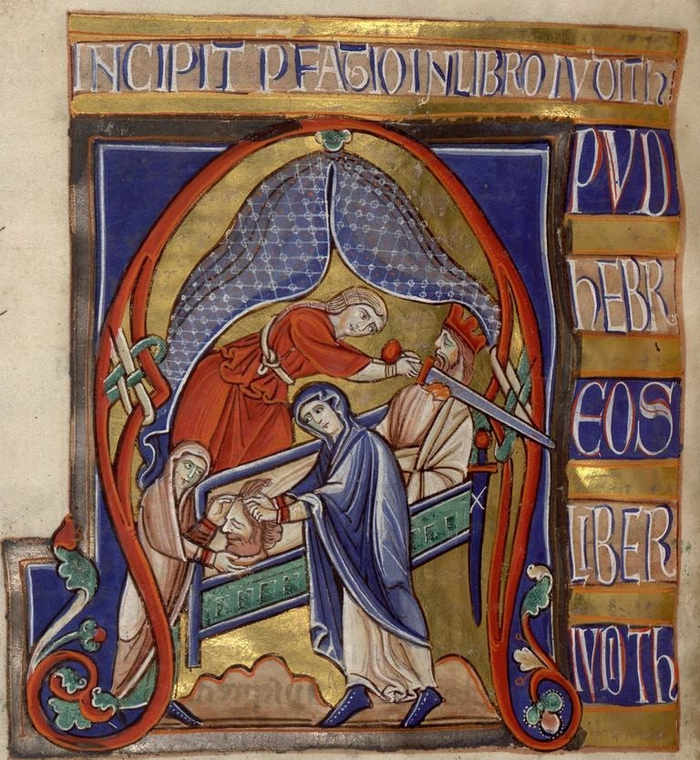 INCIPIT PFATIO IN LIBRO IVDITh
A
PVD
hEBR
EOS
LIBER
IVDITh